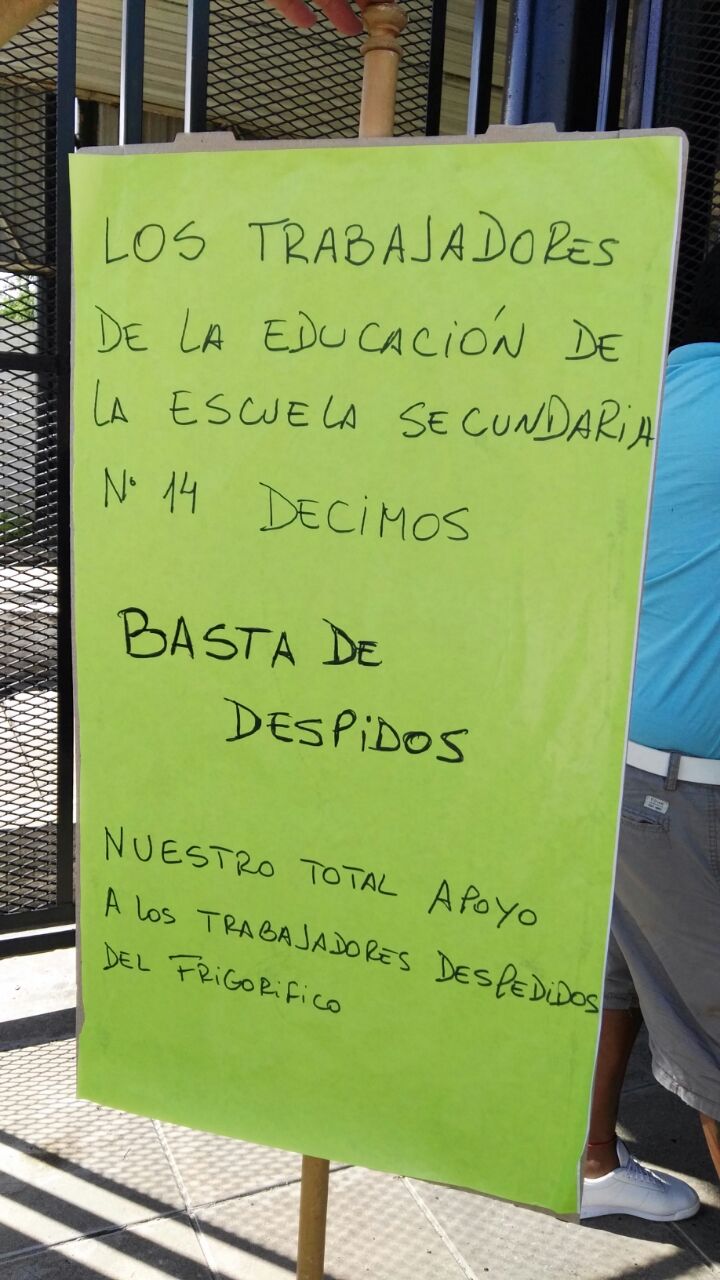 LOS TRABAJADORES
DE LA EDUCACIÓN DE
LA ESCUELA SECUNDARIA
N° 14 DECIMOS
BASTA DE
DESPIDOS
NUESTRO TOTAL APOYO
A LOS TRABAJADORES DESPEDIDOS
DEL FRIGORIFICO